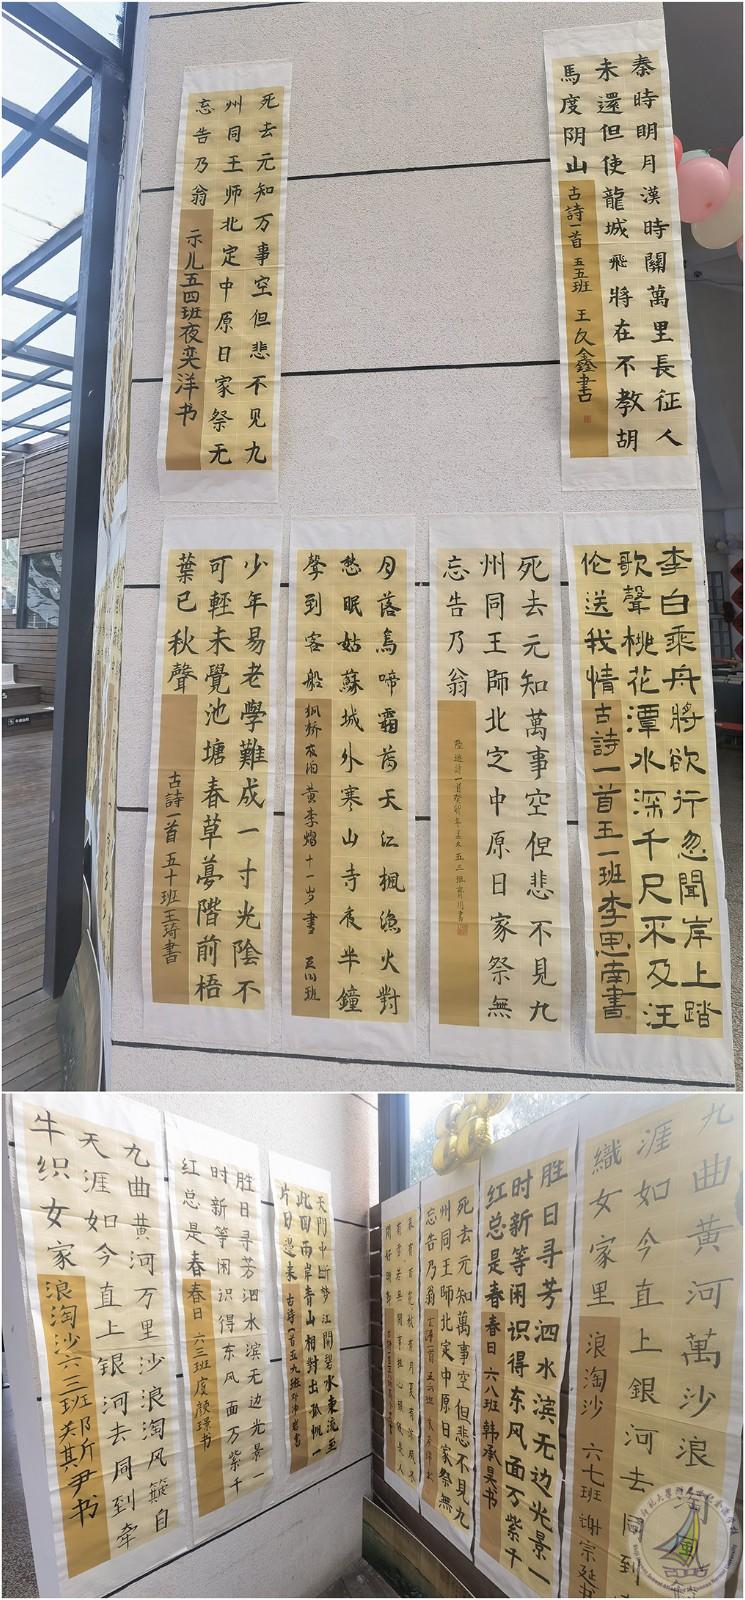 死去元知万事空但悲不见九
州同王师北定中原日家祭无
忘告乃翁
示儿五四班夜奕洋书
秦時明月漢時關萬里長征人
未還但使龍城飛將在不教胡
馬度阴山
古詩一首 五五班 王久鑫書
少年易老學難成一寸光陰不
可輕未覺池塘春草夢階前梧
葉已秋聲
古詩一首 五十班王琦書
月落烏啼霜滿天江楓漁火對
愁眠姑蘇城外寒山寺夜半鐘
聲到客船
死去元知萬事空但悲不見九
州同王師北定中原日家祭無
忘告乃翁
李白乘舟將欲行忽聞岸上踏
歌聲桃花潭水深千尺不及汪
伦送我情
古詩一首王一班李思南書
九曲黄河万里沙浪淘风簸自
天涯如今直上银河去同到牵
牛织女家
浪淘沙六三班
胜日寻芳泗水滨无边光景一
时新等闲识得东风面万紫千
红总是春
春日 六三班度颜璟书
天門中断楚江開碧水東流至
此回兩岸青山相對出孤帆一
片日邊来
古詩一首五九班
死去元知萬事空但悲不見九
州同王師北定中原日家祭無
忘告乃翁
胜日寻芳泗水滨无边光景一
时新等闲识得东风面万紫千
红总是春
春日 六八班 韩承昊书
九曲黄河萬沙浪淘風
涯如今直上銀河去同到
織女家里
浪淘沙 六七班 谢宗延书